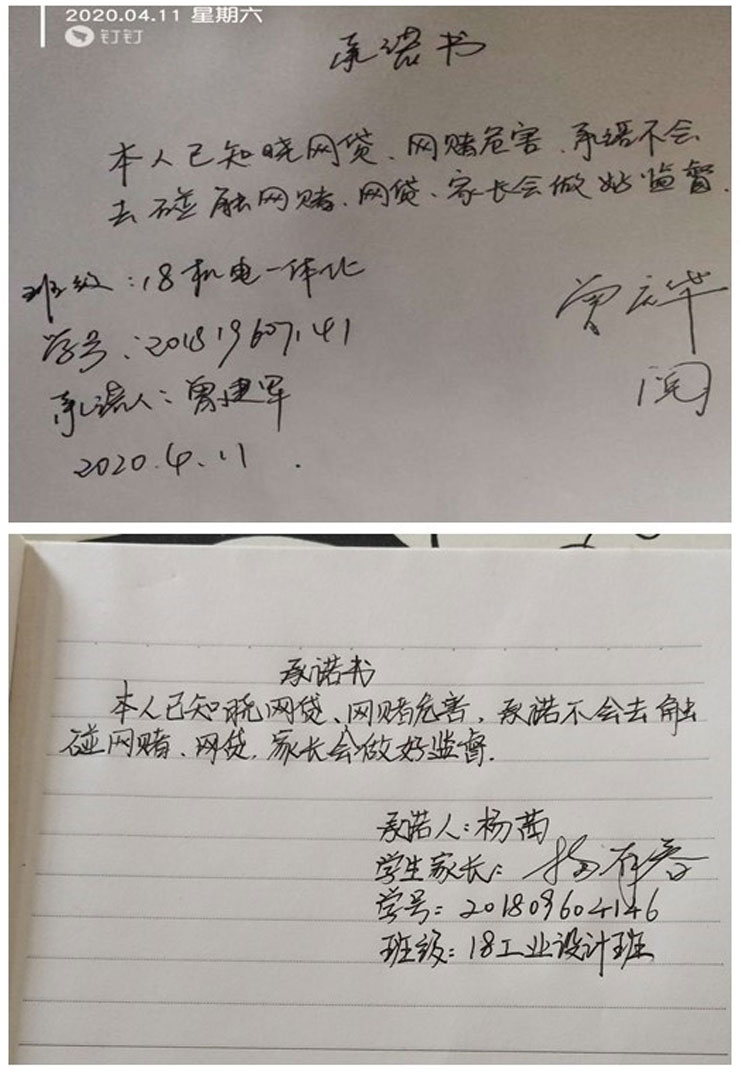 2020.04.11 星期六
钉钉
承诺书
本人已知晓网贷、网赌危害、承诺不会
去碰触网赌、网贷、家长会做好监督.
班级:18机电一体化
学号:201819607141
承诺人:曾建军
2020.4.11.
曾庆华
阅
承诺书
本人已知晓网贷、网赌危害,承诺不会去触
碰网赌、网贷,家长会做好监督.
承诺人:杨茜
学生家长:杨
学号:201809604146
班级:18工业设计班